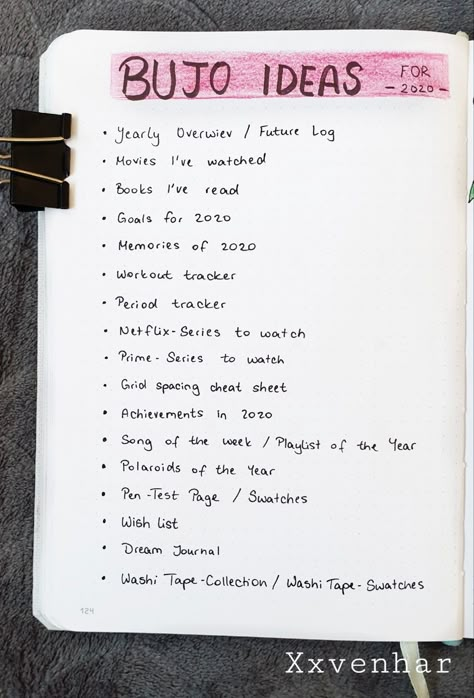 BUJO IDEAS FOR
- 2020 -
• Yearly Overwiev / Future Log
• Movies I've watched
• Books I've read
• Goals for 2020
• Memories of 2020
• Workout tracker
• Period tracker
• Netflix-Series to watch
• Prime-Series to watch
• Grid spacing cheat sheet
• Achievements in 2020
• Song of the week / Playlist of the Year
• Polaroids of the Year
• Pen-Test Page / Swatches
• Wish list
• Dream Journal
• Washi Tape-Collection / Washi Tape-Swatches
124
Xxvenhar